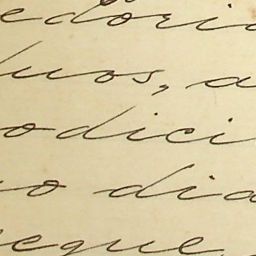 edori
luos, a
odici
o dia
eque